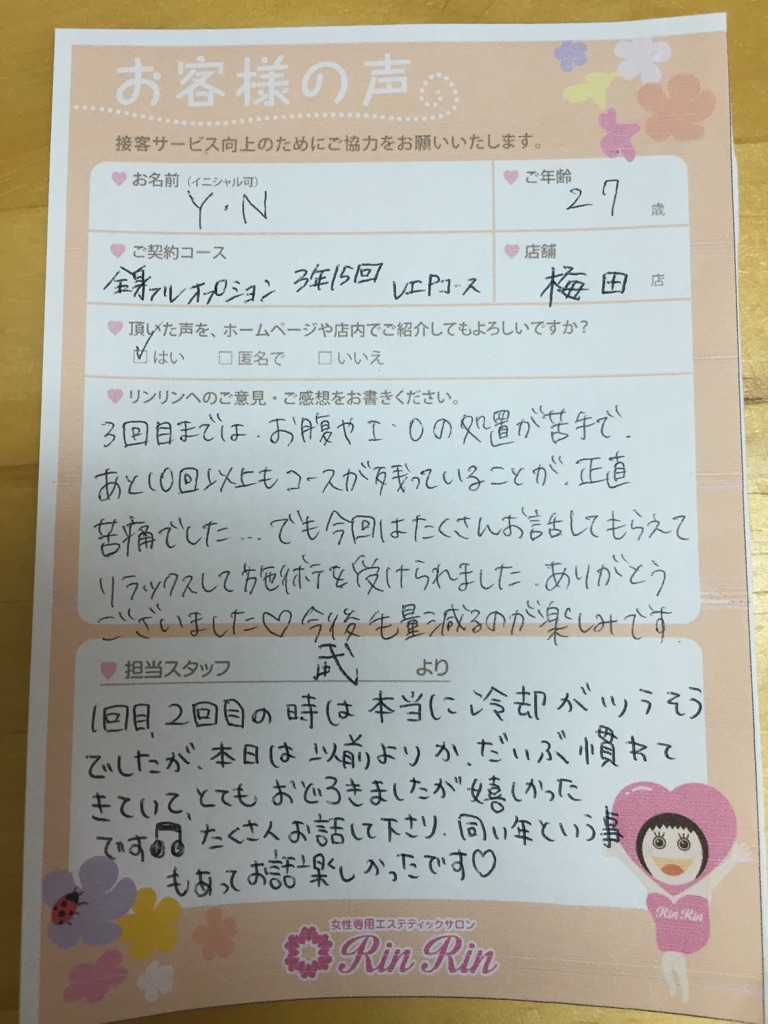 お客様の声
接客サービス向上のためにご協力をお願いいたします。
お名前（イニシャル可）
Y・N
ご年齢
27 歳
ご契約コース
全身フルオプション 3年15回 VIPコース
店舗
梅田 店
頂いた声を、ホームページや店内でご紹介してもよろしいですか？
☑はい □匿名で □いいえ
リンリンへのご意見・ご感想をお書きください。
3回目までは、お腹やI・Oの処置が苦手で、
あと10回以上もコースが残っていることが、正直
苦痛でした…でも今回はたくさんお話してもらえて
リラックスして施術を受けられました。ありがとう
ございました♡今後毛量減るのが楽しみです
担当スタッフ 武 より
1回目、2回目の時は本当に冷却がツラそう
でしたが、本日は以前よりか、だいぶ慣れて
きていて、とてもおどろきましたが嬉しかった
です♫ たくさんお話して下さり、同い年という事
もあってお話楽しかったです♡
Rin Rin
女性専用エステティックサロン
Rin Rin